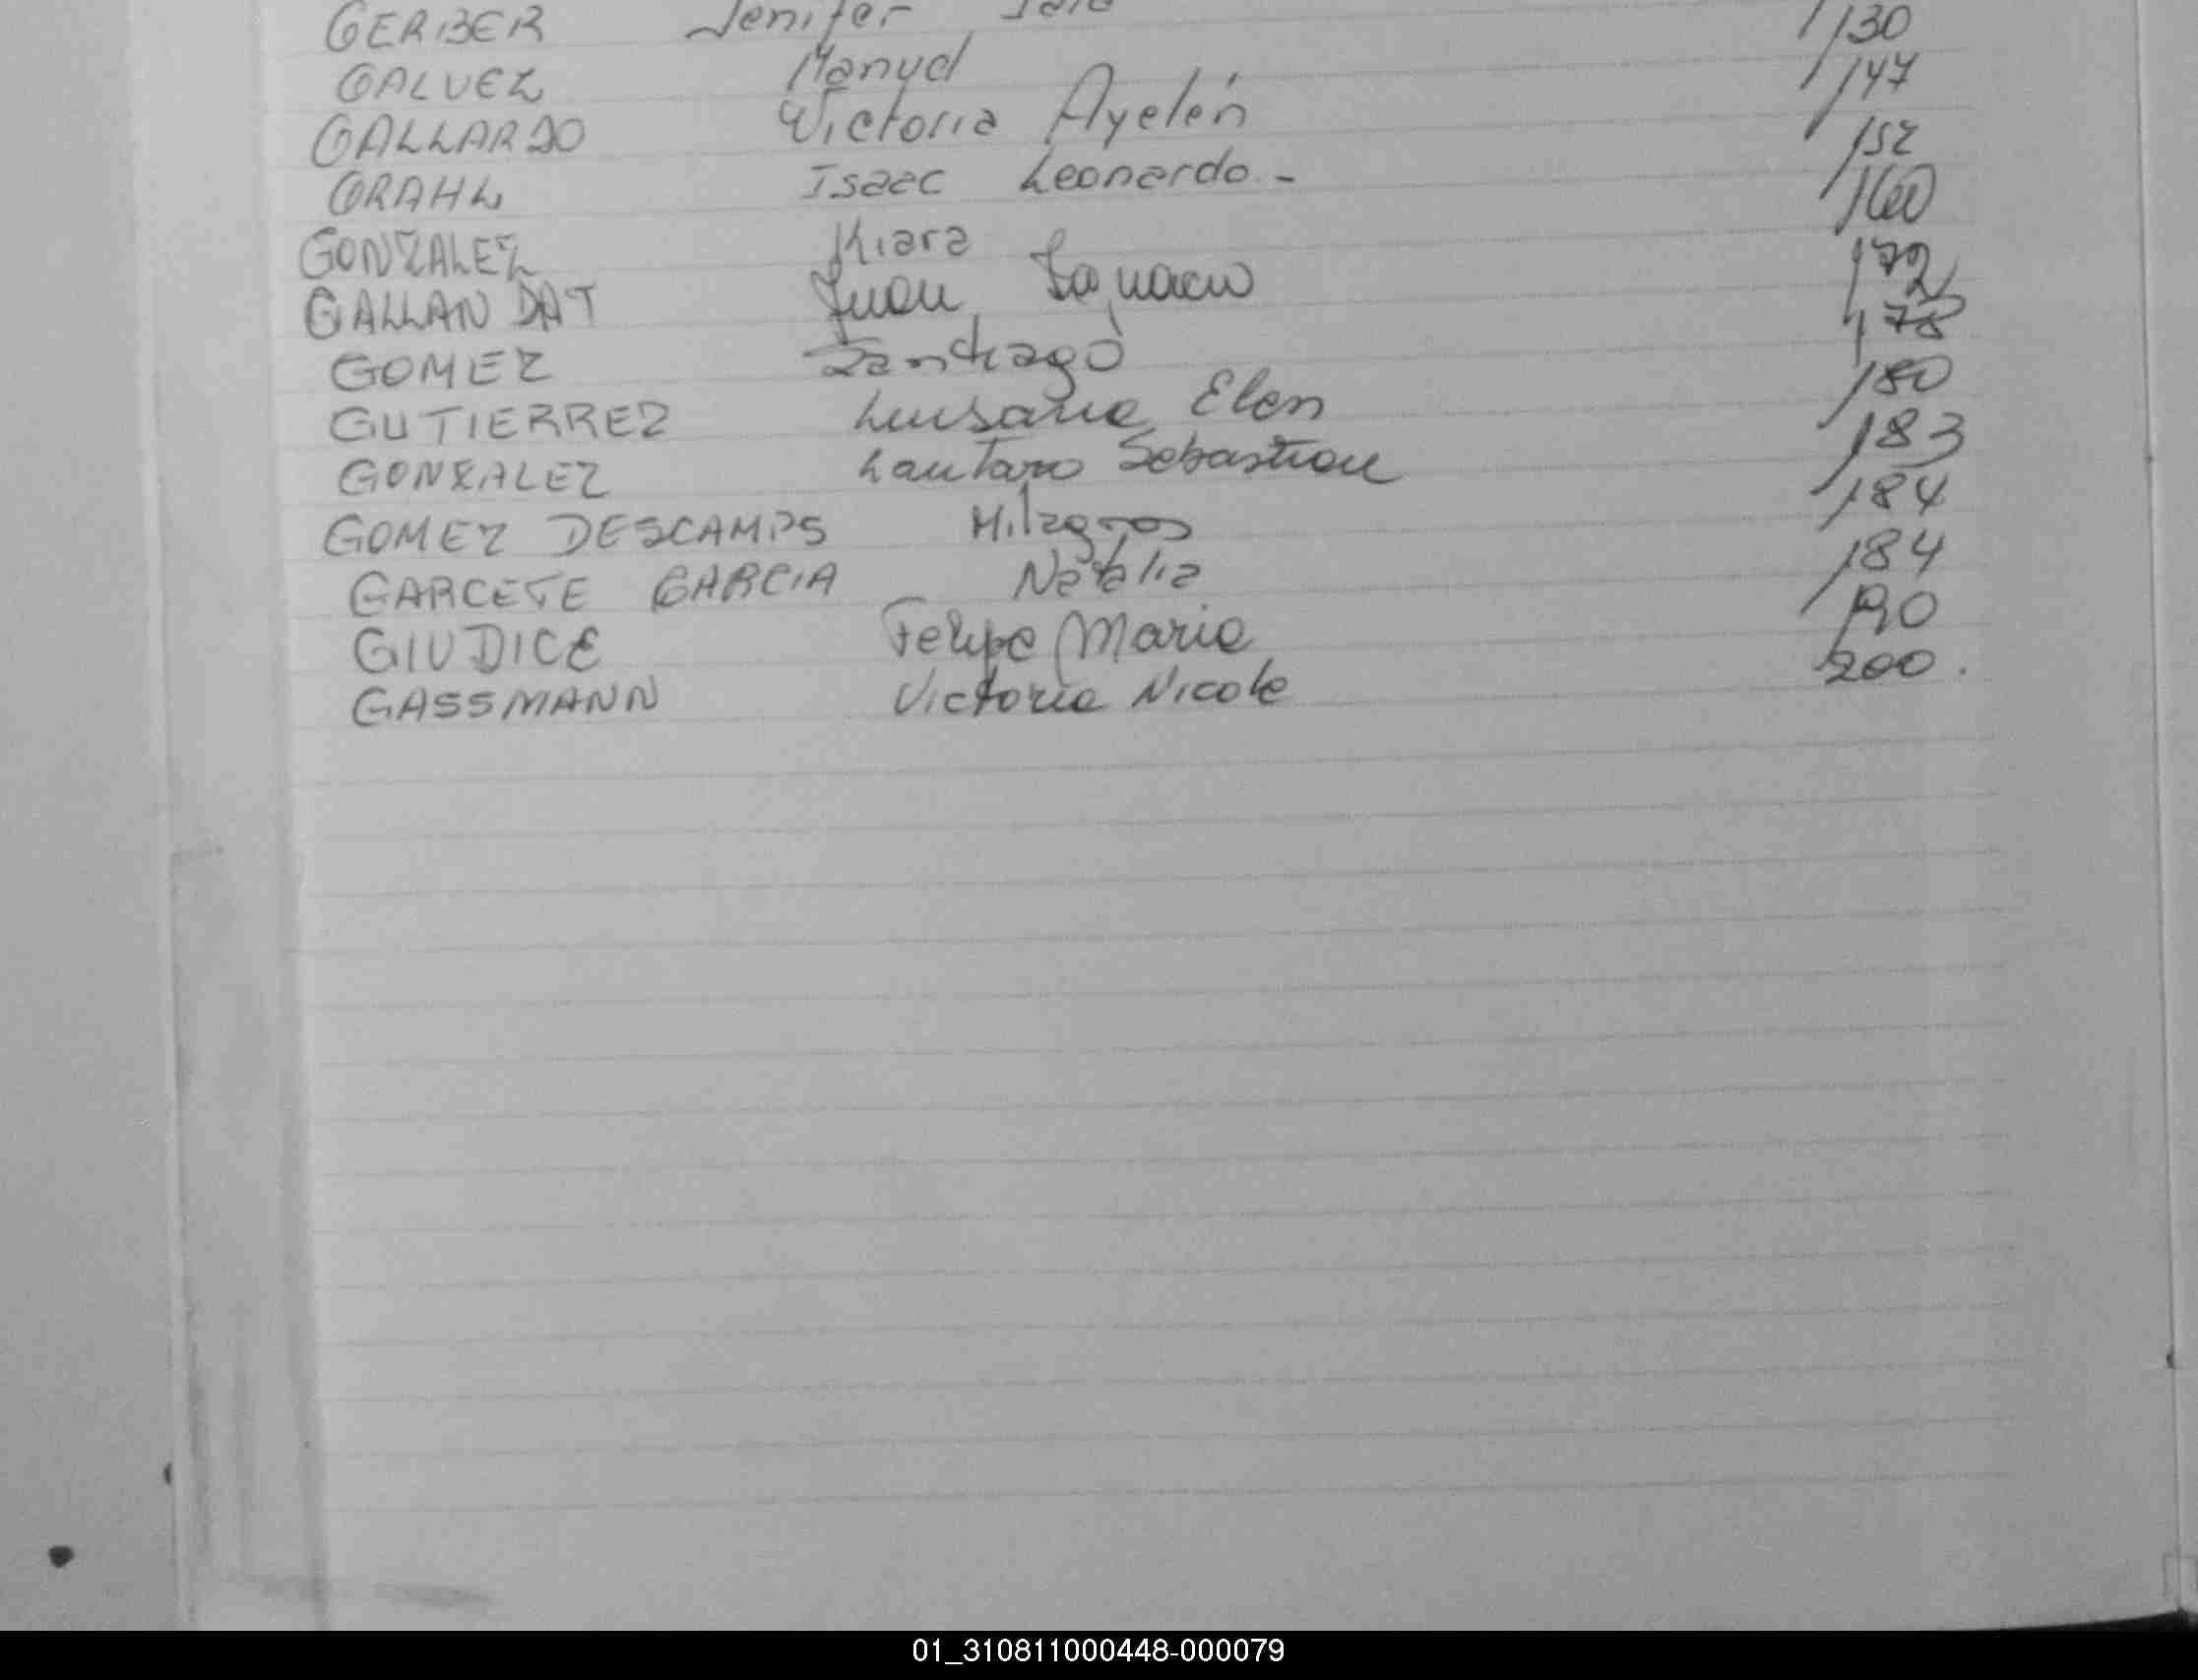 GERBER Jenifer 130
GALVEZ Manuel 147
GALLARDO Victoria Ayelén 152
GRAHL Isaac Leonardo.- 160
GONZALEZ Kiara 172
GALLANDAT Juan Ignacio 178
GOMEZ Santiago 180
GUTIERREZ Luisana Elen 183
GONZALEZ Lautaro Sebastian 184
GOMEZ DESCAMPS Milagros 184
GARCETE GARCIA Natalia 190
GIUDICE Felipe Maria 200.
GASSMANN Victoria Nicole
01_310811000448-000079